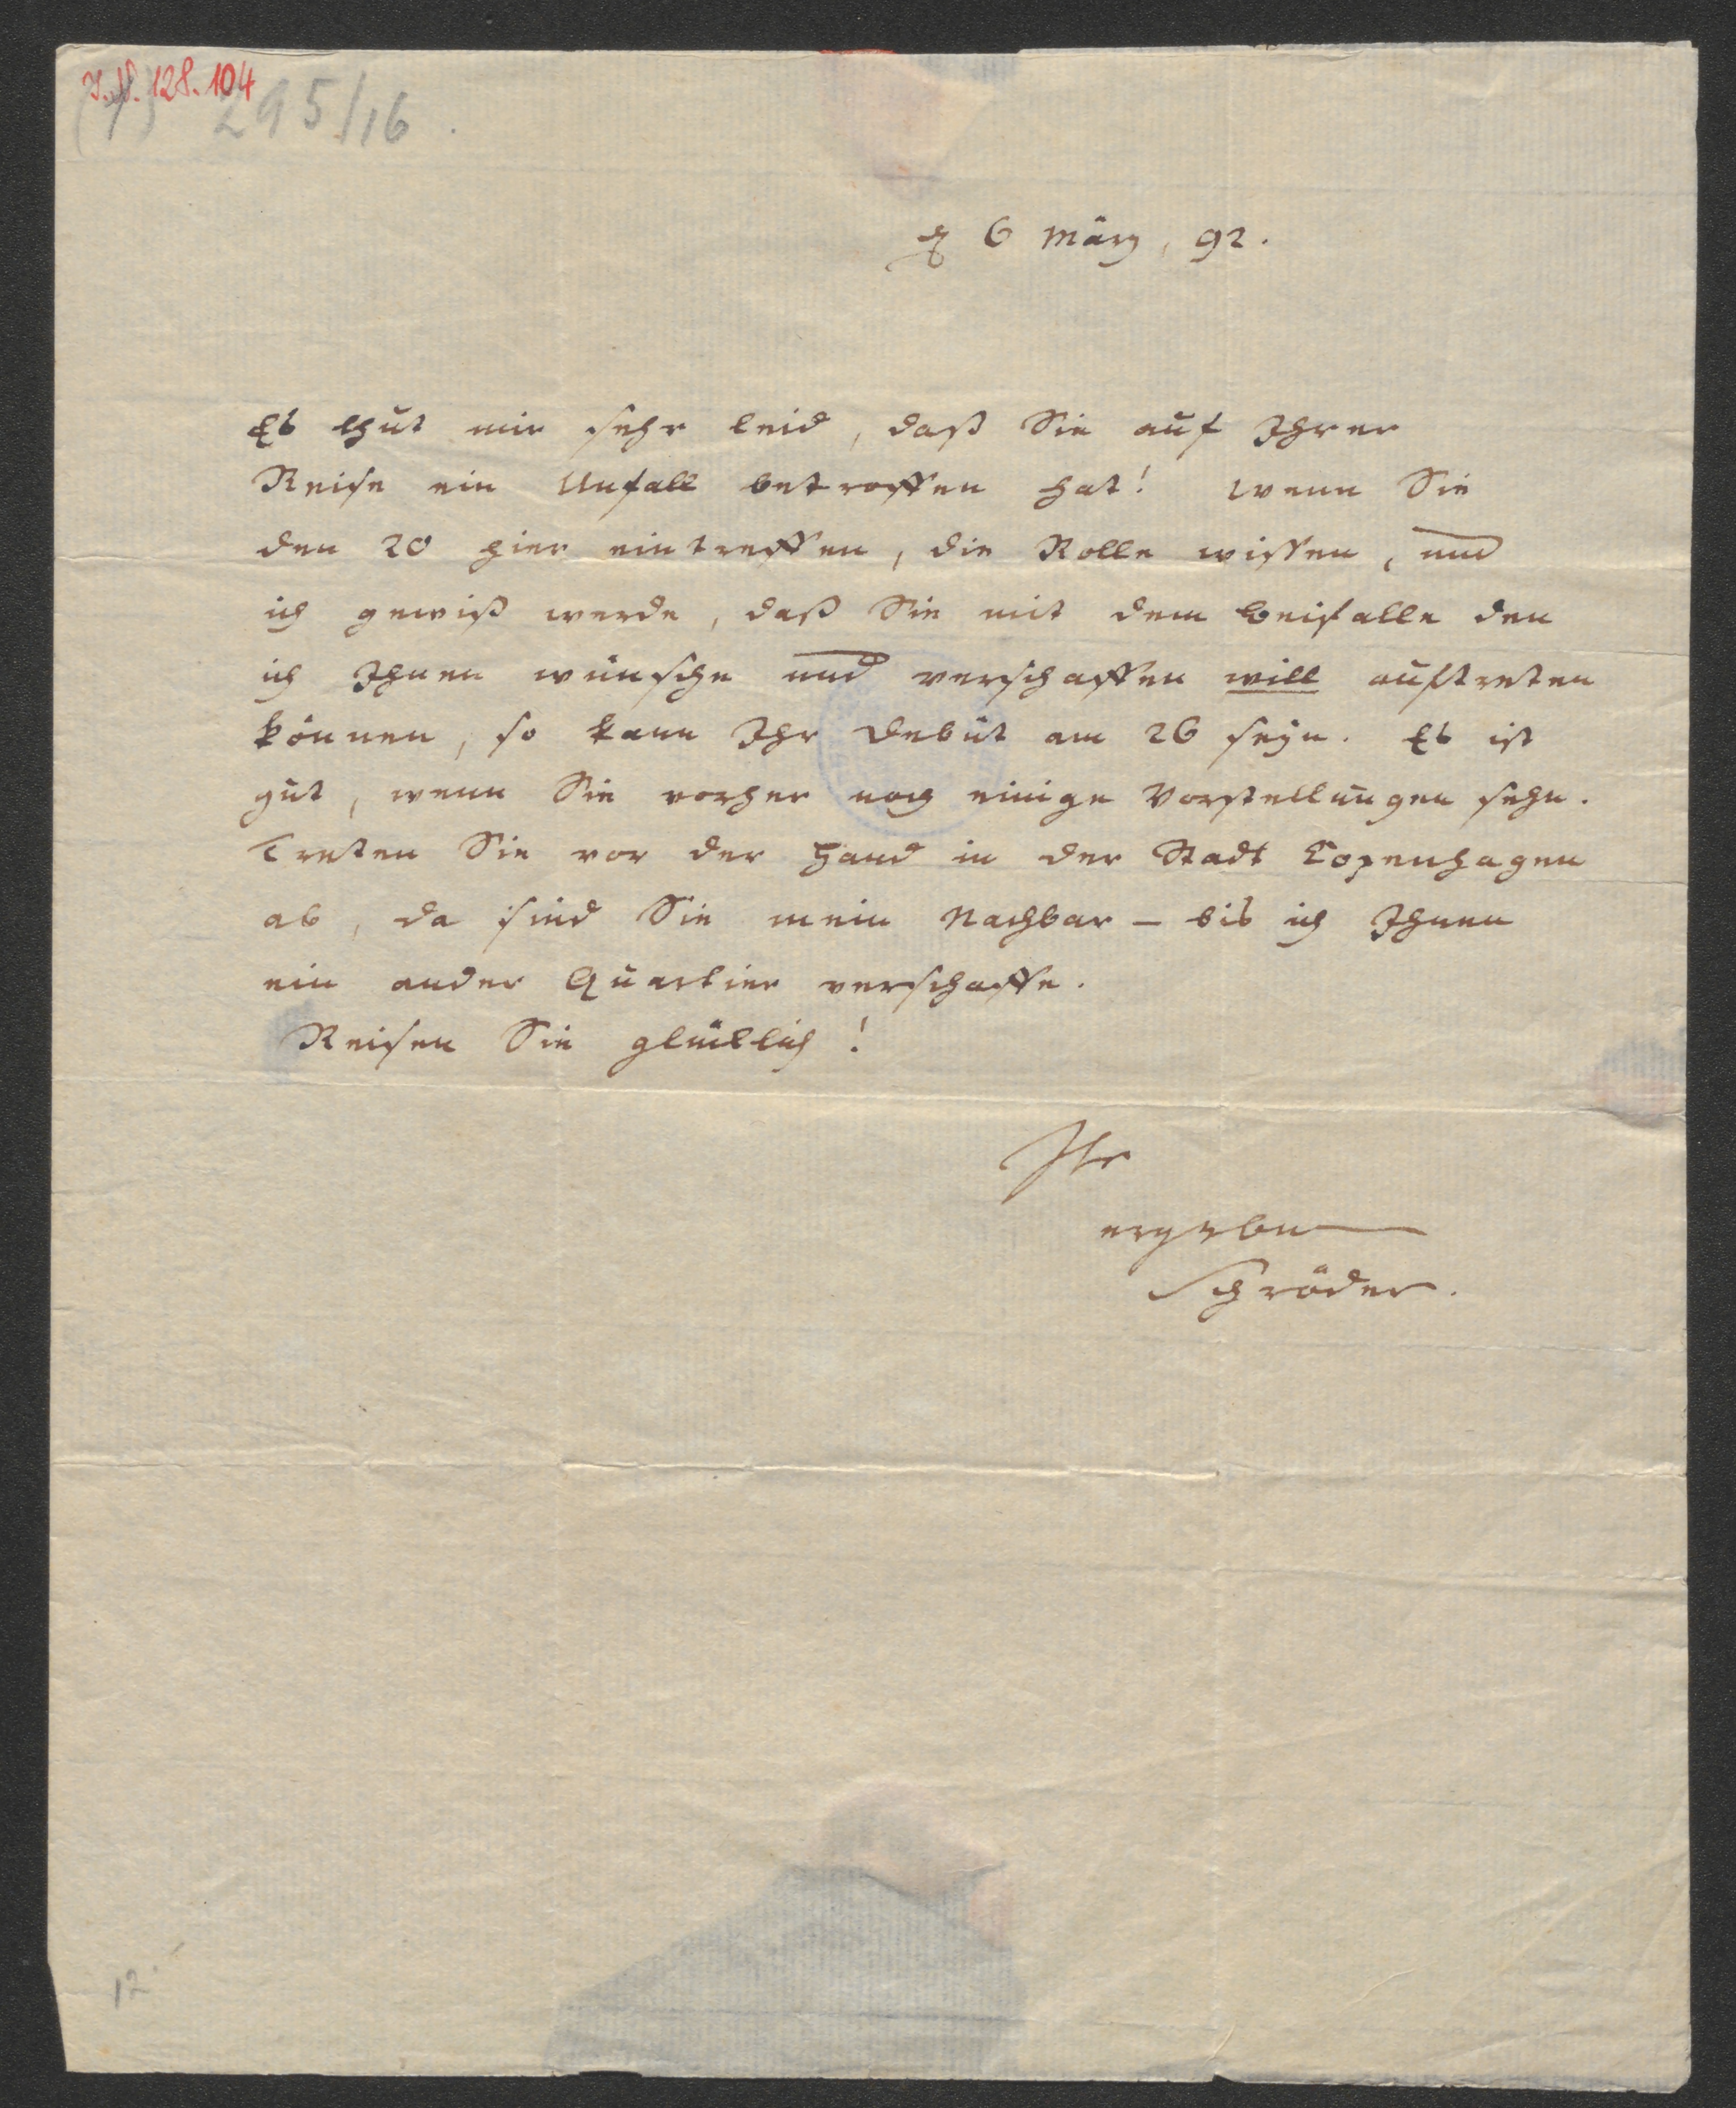 I.N. 128.104
295/16.
d 6 März, 92.
Es thut mir sehr leid, daß Sie auf Ihrer
Reise ein Unfall betroffen hat! Wenn Sie
den 20 hier eintreffen, die Rolle wissen, und
ich gewiß werde, daß Sie mit dem Beifalle den
ich Ihnen wünsche und verschaffen will auftreten
können, so kann Ihr Debüt am 26 seyn. Es ist
gut, wenn Sie vorher noch einige Vorstellungen sehn.
Treten Sie vor der Hand in der Stadt Copenhagen
ab, da sind Sie mein Nachbar – bis ich Ihnen
ein ander Quartier verschaffe.
Reisen Sie glücklich!
Ihr
ergeben
Schröder.
12